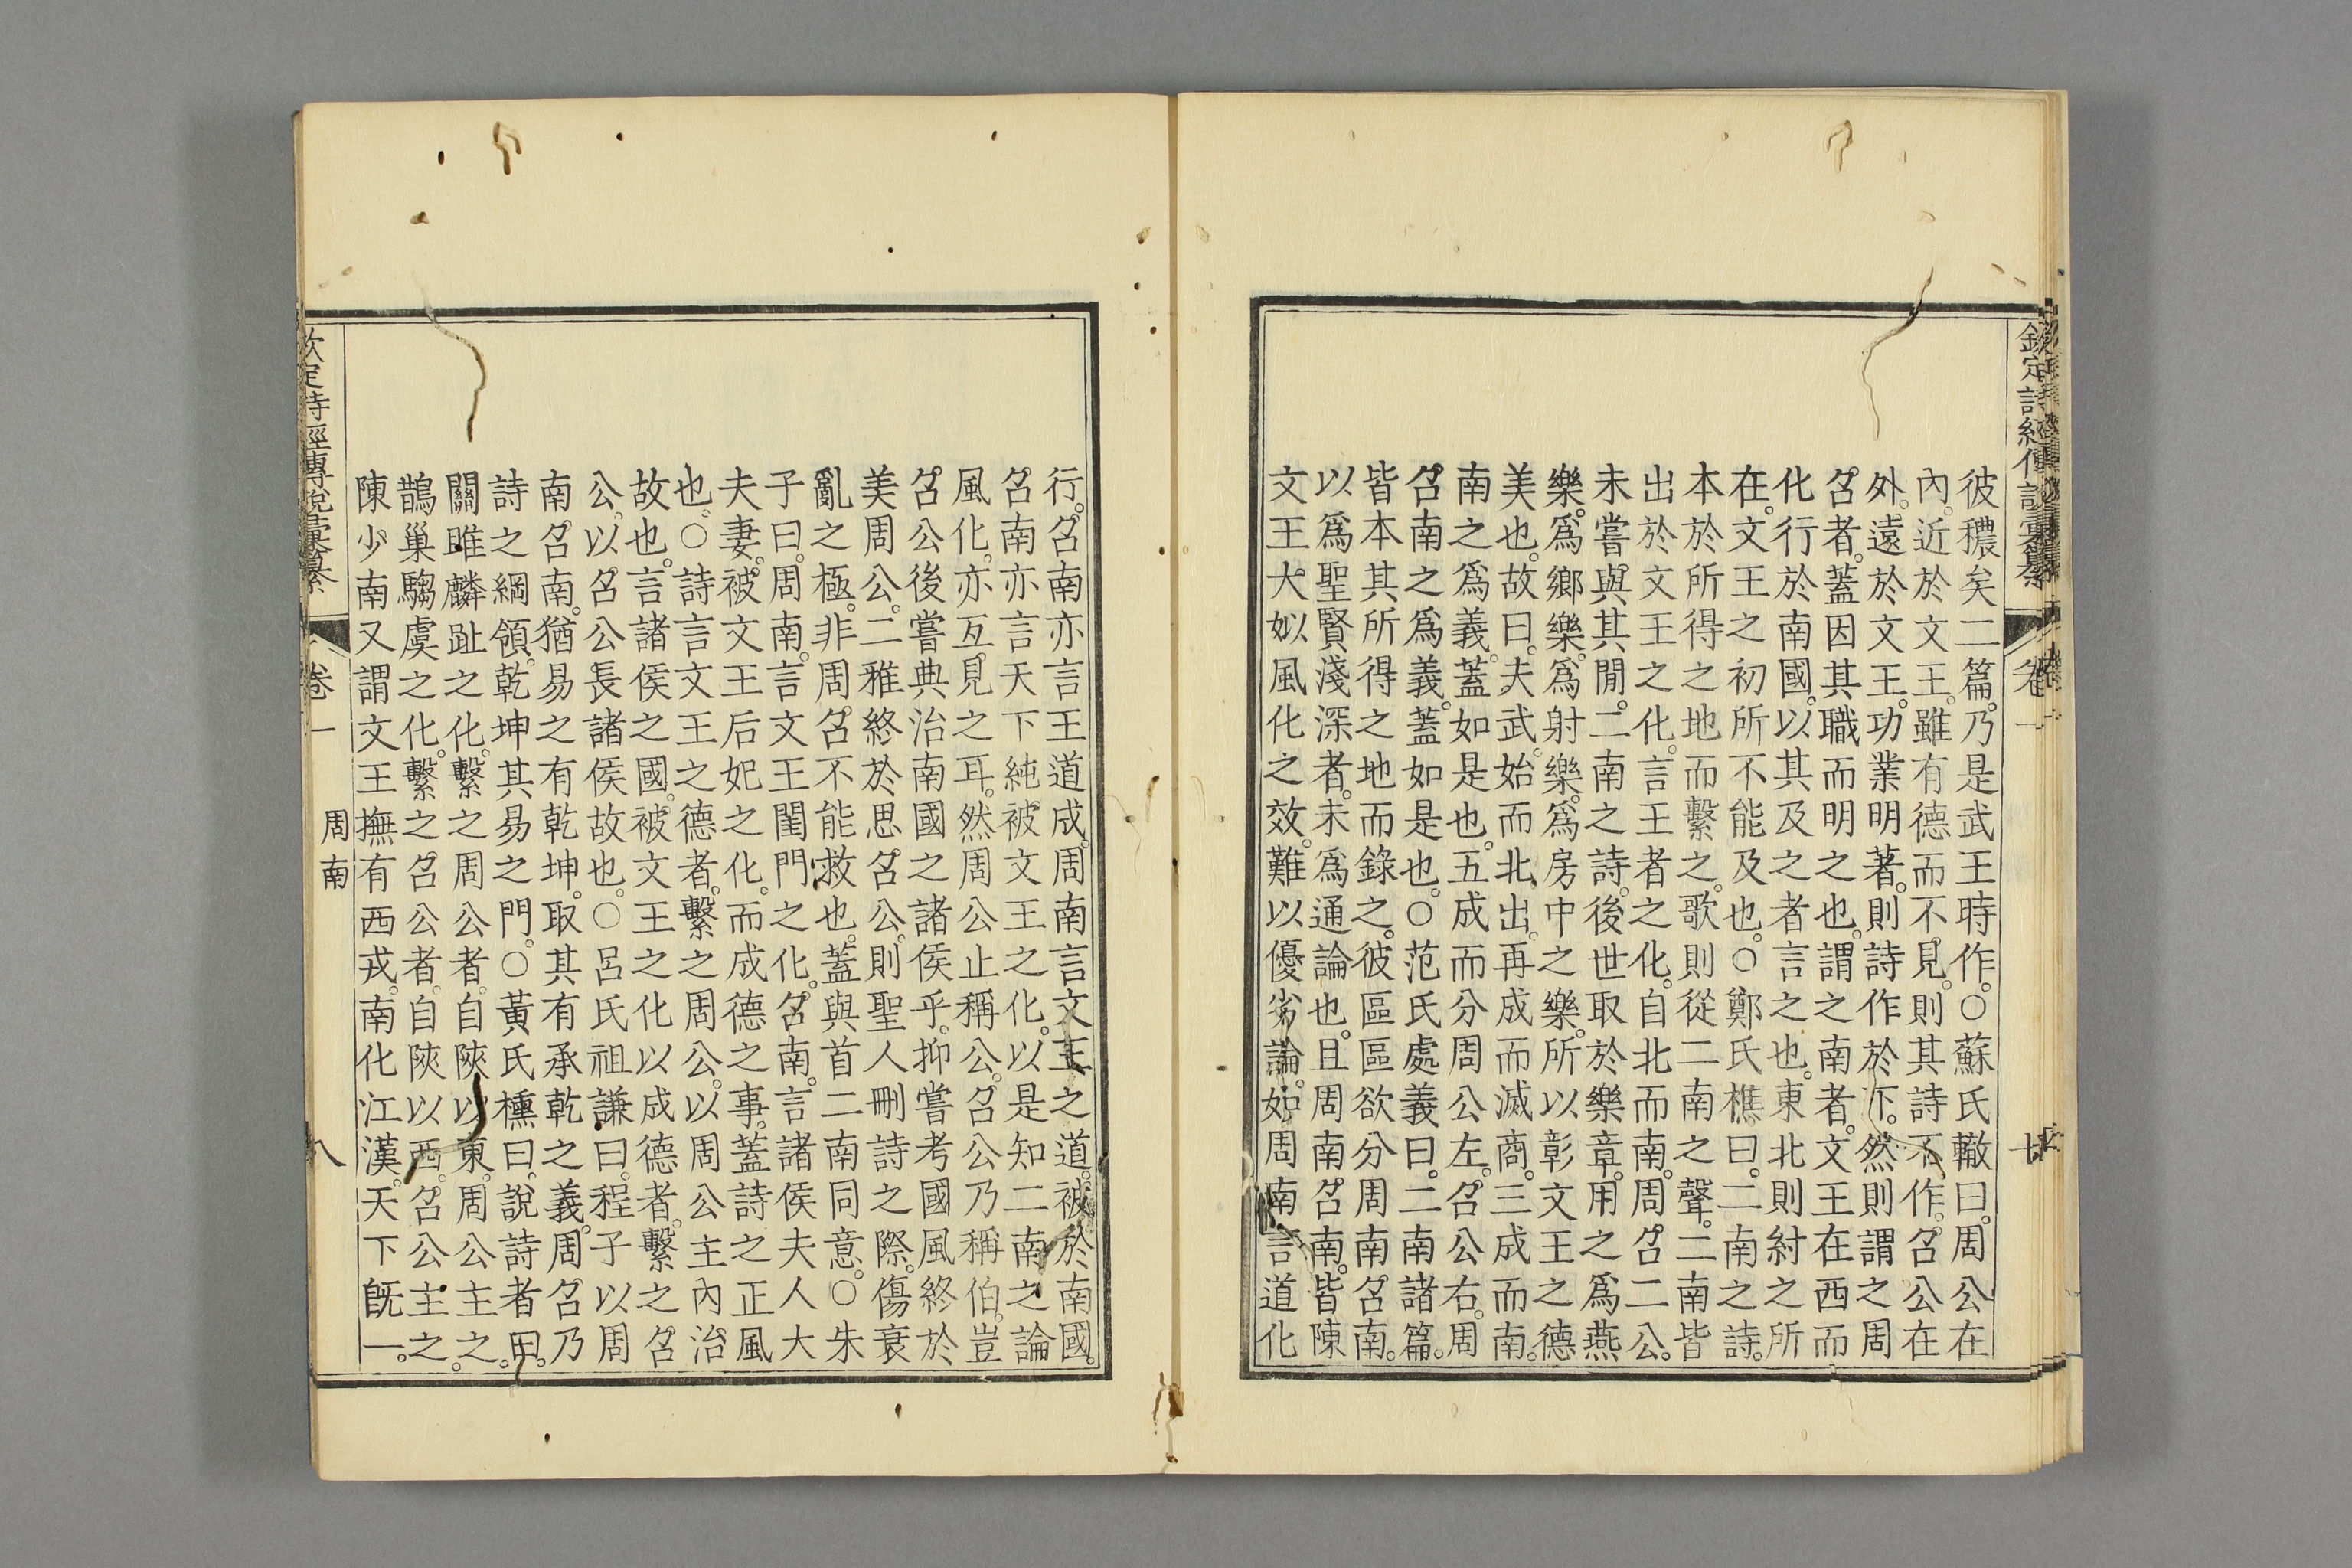 欽定詩經傳說彙纂 卷一
彼穠矣二篇。乃是武王時作。○蘇氏轍曰。周公在
內。近於文王。雖有德而不見。則其詩不作。召公在
外。遠於文王。功業明著。則詩作於下。然則謂之周
召者。蓋因其職而明之也。謂之南者。文王在西而
化行於南國。以其及之者言之也。東北則紂之所
在。文王之初所不能及也。○鄭氏樵曰。二南之詩。
本於所得之地而繫之。歌則從二南之聲。二南皆
出於文王之化。言王者之化。自北而南。周召二公。
未嘗與其閒。二南之詩。後世取於樂章。用之爲燕
樂。爲鄉樂。爲射樂。爲房中之樂。所以彰文王之德
美也。故曰。夫武。始而北出。再成而滅商。三成而南。
南之爲義。蓋如是也。五成而分周公左。召公右。周
召南之爲義。蓋如是也。○范氏處義曰。二南諸篇。
皆本其所得之地而錄之。彼區區欲分周南召南。
以爲聖賢淺深者。未爲通論也。且周南召南。皆陳
文王大姒風化之效。難以優劣論。如周南言道化
行。召南亦言王道成。周南言文王之道。被於南國。
召南亦言天下純被文王之化。以是知二南之論
風化。亦互見之耳。然周公止稱公。召公乃稱伯。豈
召公後嘗典治南國之諸侯乎。抑嘗考國風終於
美周公。二雅終於思召公。則聖人刪詩之際。傷衰
亂之極。非周召不能救也。蓋與首二南同意。○朱
子曰。周南。言文王閨門之化。召南。言諸侯夫人大
夫妻。被文王后妃之化。而成德之事。蓋詩之正風
也。○詩言文王之德者。繫之周公。以周公主內治
故也。言諸侯之國。被文王之化以成德者。繫之召
公。以召公長諸侯故也。○呂氏祖謙曰。程子以周
南召南。猶易之有乾坤。取其有承乾之義。周召乃
詩之綱領。乾坤其易之門。○黃氏櫄曰。說詩者曰。
關雎麟趾之化。繫之周公者。自陝以東。周公主之。
鵲巢騶虞之化。繫之召公者。自陝以西。召公主之。
陳少南又謂文王撫有西戎。南化江漢。天下旣一。
欽定詩經傳說彙纂 卷一 周南 八